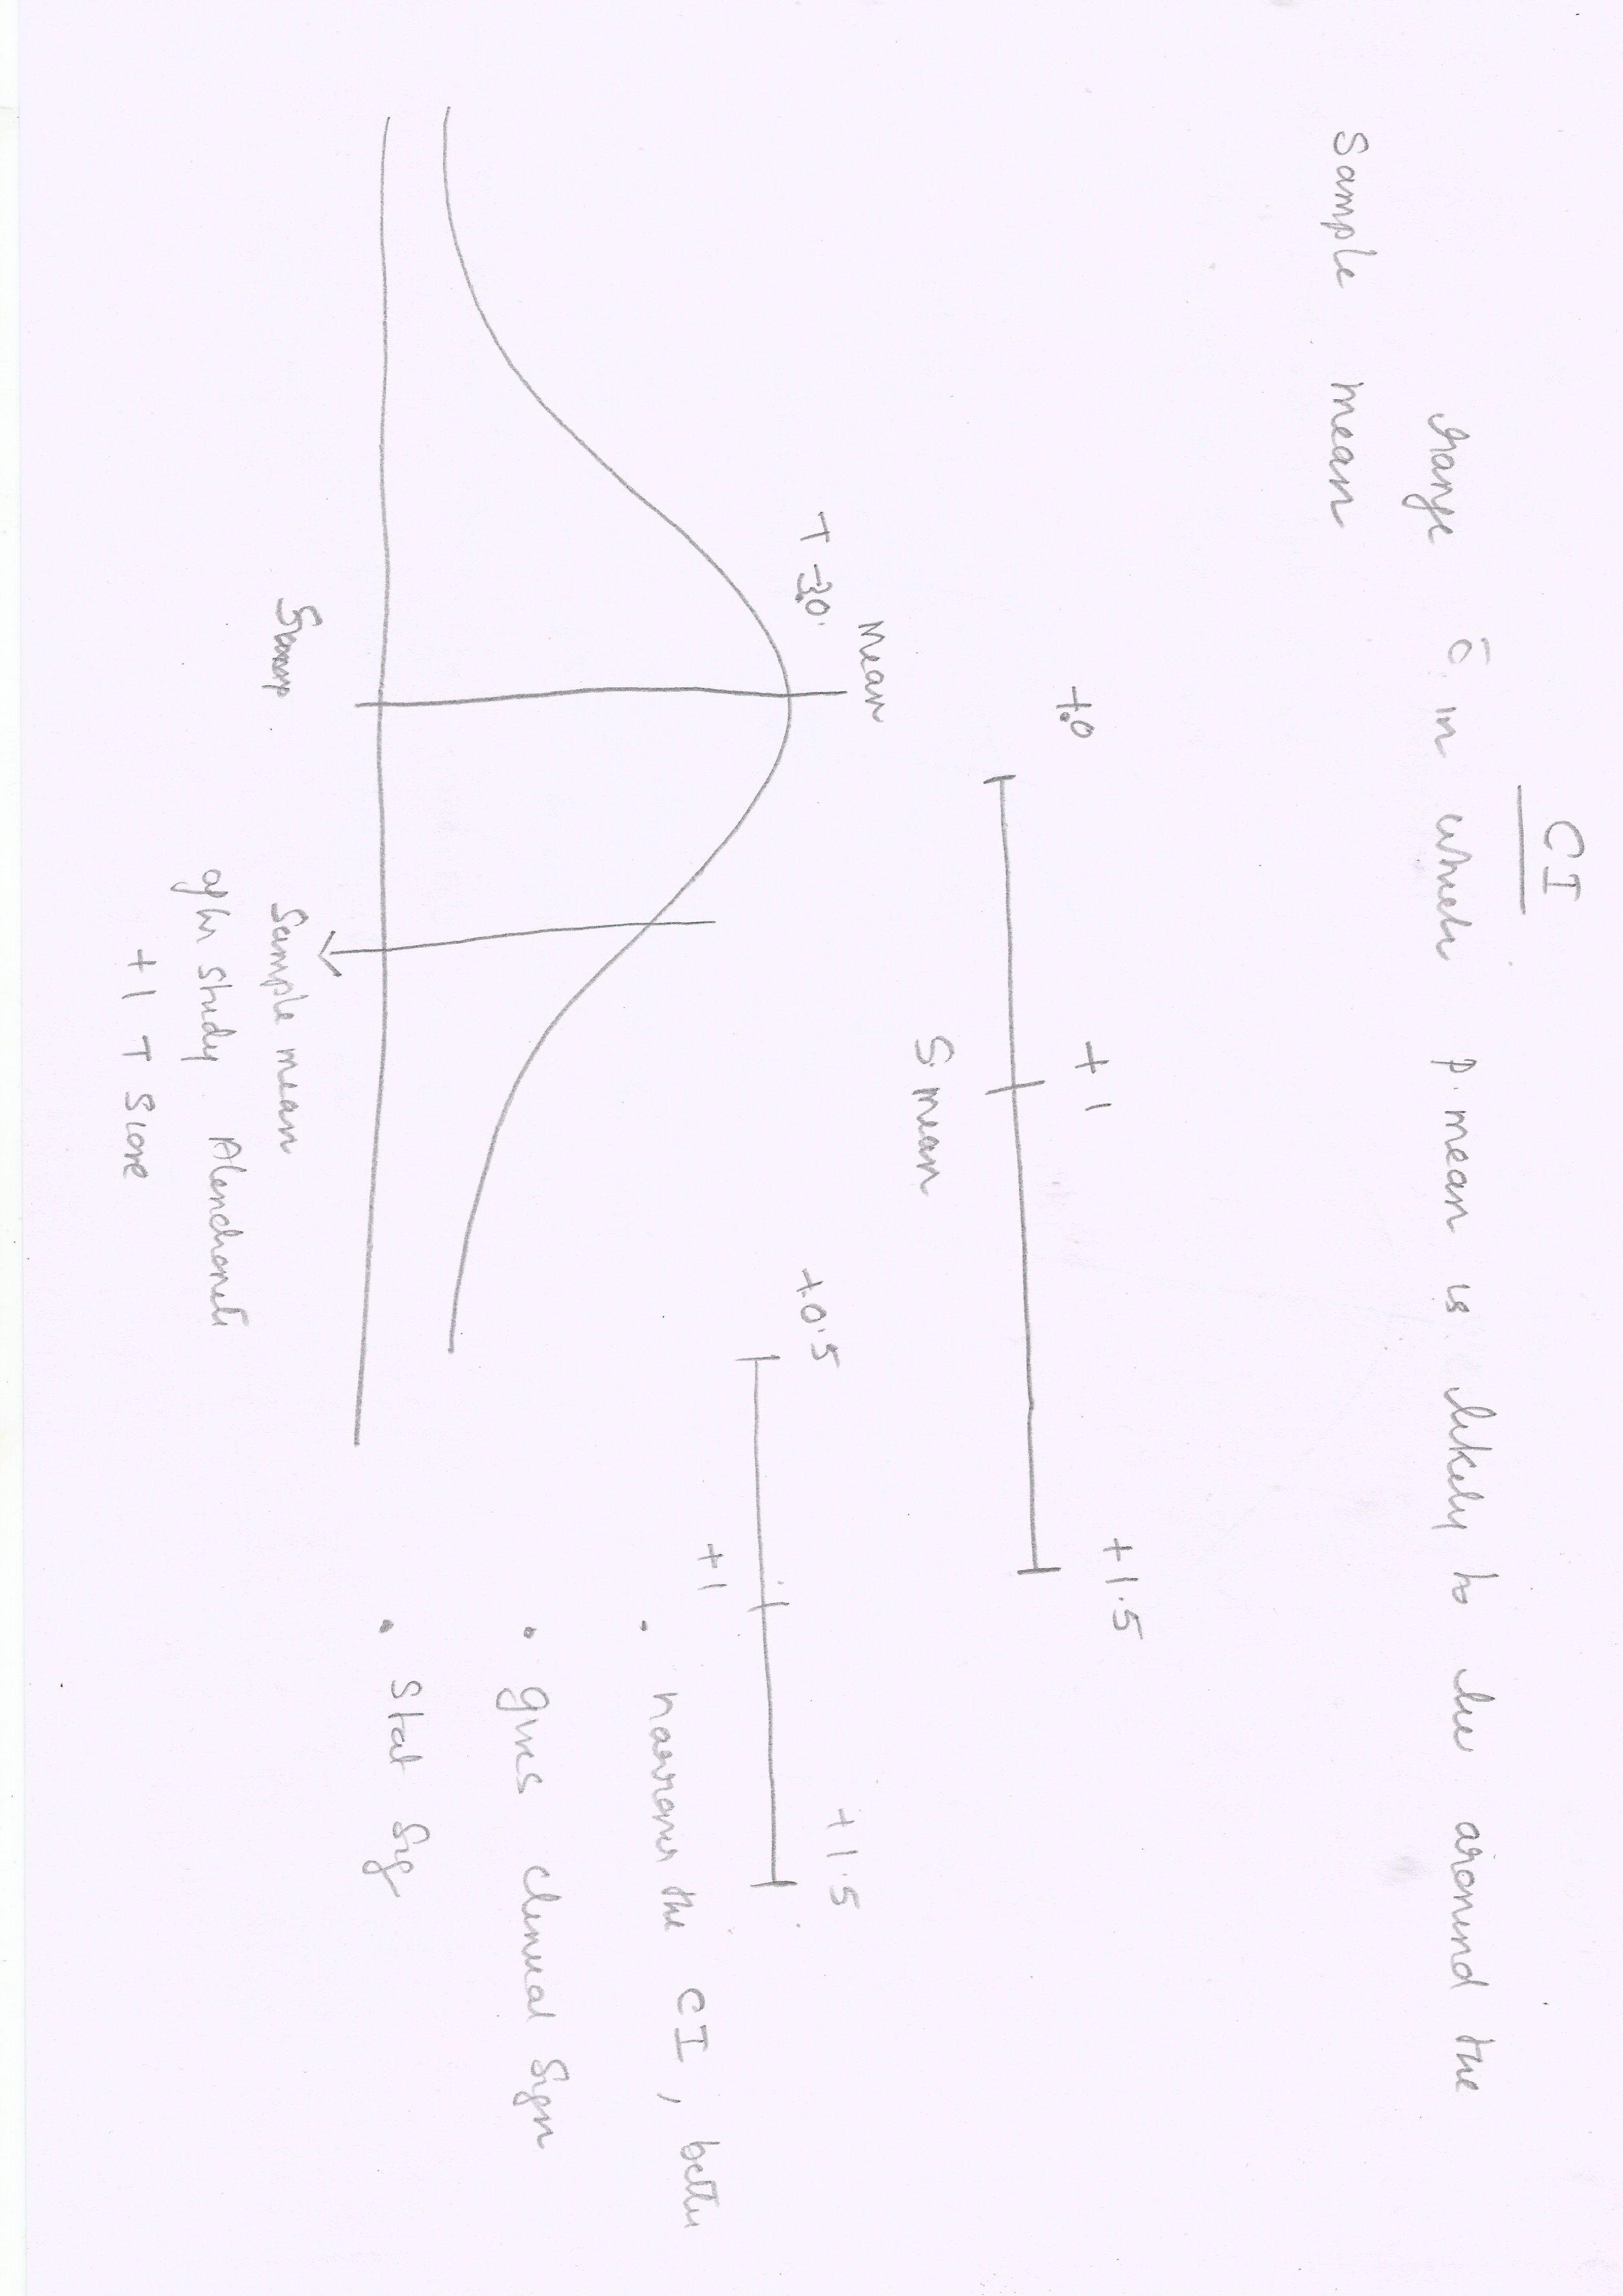 CI
range c̄ in which p. mean is likely to lie around the
Sample mean
+.0
+1
+1.5
S. mean
Mean
T -3.0
+0.5
+1.5
+1
. narrower the CI, better
• gives clinical Sign
• Stat Sig
Sample mean
after study Alendronate
+1 T Score